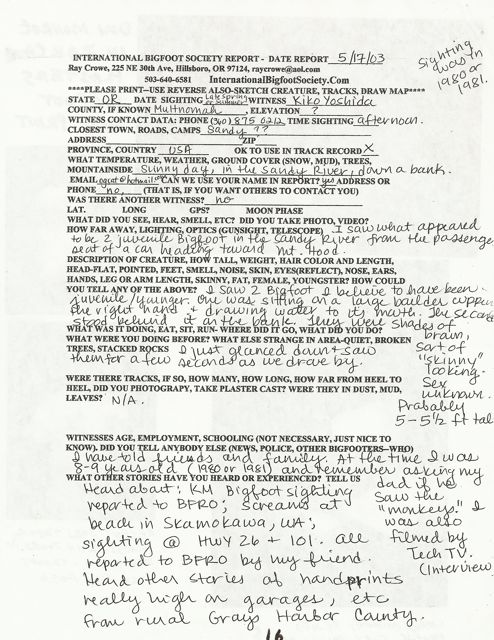 INTERNATIONAL BIGFOOT SOCIETY REPORT - DATE REPORT 5/17/03
Ray Crowe, 225 NE 30th Ave, Hillsboro, OR 97124, raycrowe@aol.com
503-640-6581 InternationalBigfootSociety.Com
Sighting was in 1980 or 1981.
****PLEASE PRINT--USE REVERSE ALSO-SKETCH CREATURE, TRACKS, DRAW MAP****
STATE OR DATE SIGHTING Late Spring or Summer WITNESS Kiko Yoshida
COUNTY, IF KNOWN Multnomah, ELEVATION ?
WITNESS CONTACT DATA: PHONE (360) 875 0212 TIME SIGHTING afternoon.
CLOSEST TOWN, ROADS, CAMPS Sandy ??
ADDRESS ZIP
PROVINCE, COUNTRY USA OK TO USE IN TRACK RECORD X
WHAT TEMPERATURE, WEATHER, GROUND COVER (SNOW, MUD), TREES,
MOUNTAINSIDE Sunny day, in the Sandy River, down a bank.
EMAIL @hotmail CAN WE USE YOUR NAME IN REPORT? yes ADDRESS OR
PHONE no, (THAT IS, IF YOU WANT OTHERS TO CONTACT YOU)
WAS THERE ANOTHER WITNESS? no
LAT. LONG GPS? MOON PHASE
WHAT DID YOU SEE, HEAR, SMELL, ETC? DID YOU TAKE PHOTO, VIDEO?
HOW FAR AWAY, LIGHTING, OPTICS (GUNSIGHT, TELESCOPE) I saw what appeared
to be 2 juvenile Bigfoot in the Sandy River from the passenger
seat of a car heading toward Mt. Hood.
DESCRIPTION OF CREATURE, HOW TALL, WEIGHT, HAIR COLOR AND LENGTH,
HEAD-FLAT, POINTED, FEET, SMELL, NOISE, SKIN, EYES(REFLECT), NOSE, EARS,
HANDS, LEG OR ARM LENGTH, SKINNY, FAT, FEMALE, YOUNGSTER? HOW COULD
YOU TELL ANY OF THE ABOVE? I saw 2 Bigfoot I believe to have been
juvenile/younger. One was sitting on a large boulder cupping
the right hand & drawing water to its mouth. The second
stood behind it on the bank. They were shades of
brown, sort of "skinny" looking. Sex unknown. Probably 5-5 1/2 ft tall
WHAT WAS IT DOING, EAT, SIT, RUN- WHERE DID IT GO, WHAT DID YOU DO?
WHAT WERE YOU DOING BEFORE? WHAT ELSE STRANGE IN AREA-QUIET, BROKEN
TREES, STACKED ROCKS I just glanced down & saw
them for a few seconds as we drove by.
WERE THERE TRACKS, IF SO, HOW MANY, HOW LONG, HOW FAR FROM HEEL TO
HEEL, DID YOU PHOTOGRAPY, TAKE PLASTER CAST? WERE THEY IN DUST, MUD,
LEAVES? N/A.
WITNESSES AGE, EMPLOYMENT, SCHOOLING (NOT NECESSARY, JUST NICE TO
KNOW). DID YOU TELL ANYBODY ELSE (NEWS, POLICE, OTHER BIGFOOTERS--WHO)
I have told friends and family. At the time I was
8-9 years old (1980 or 1981) and remember asking my
dad if he saw the "monkeys." I was also filmed by Tech TV. (Interview
WHAT OTHER STORIES HAVE YOU HEARD OR EXPERIENCED? TELL US
Heard about: KM Bigfoot sighting
reported to BFRO; screams at
beach in Skamokawa, WA;
sighting @ HWY 26 + 101. all
reported to BFRO by my friend.
Heard other stories of handprints
really high on garages, etc
from rural Grays Harbor County.
16